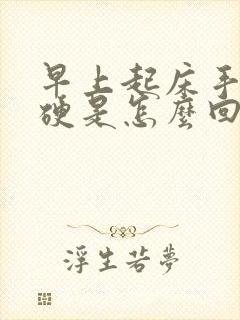 早上起床手
硬是怎麼回
浮生若夢